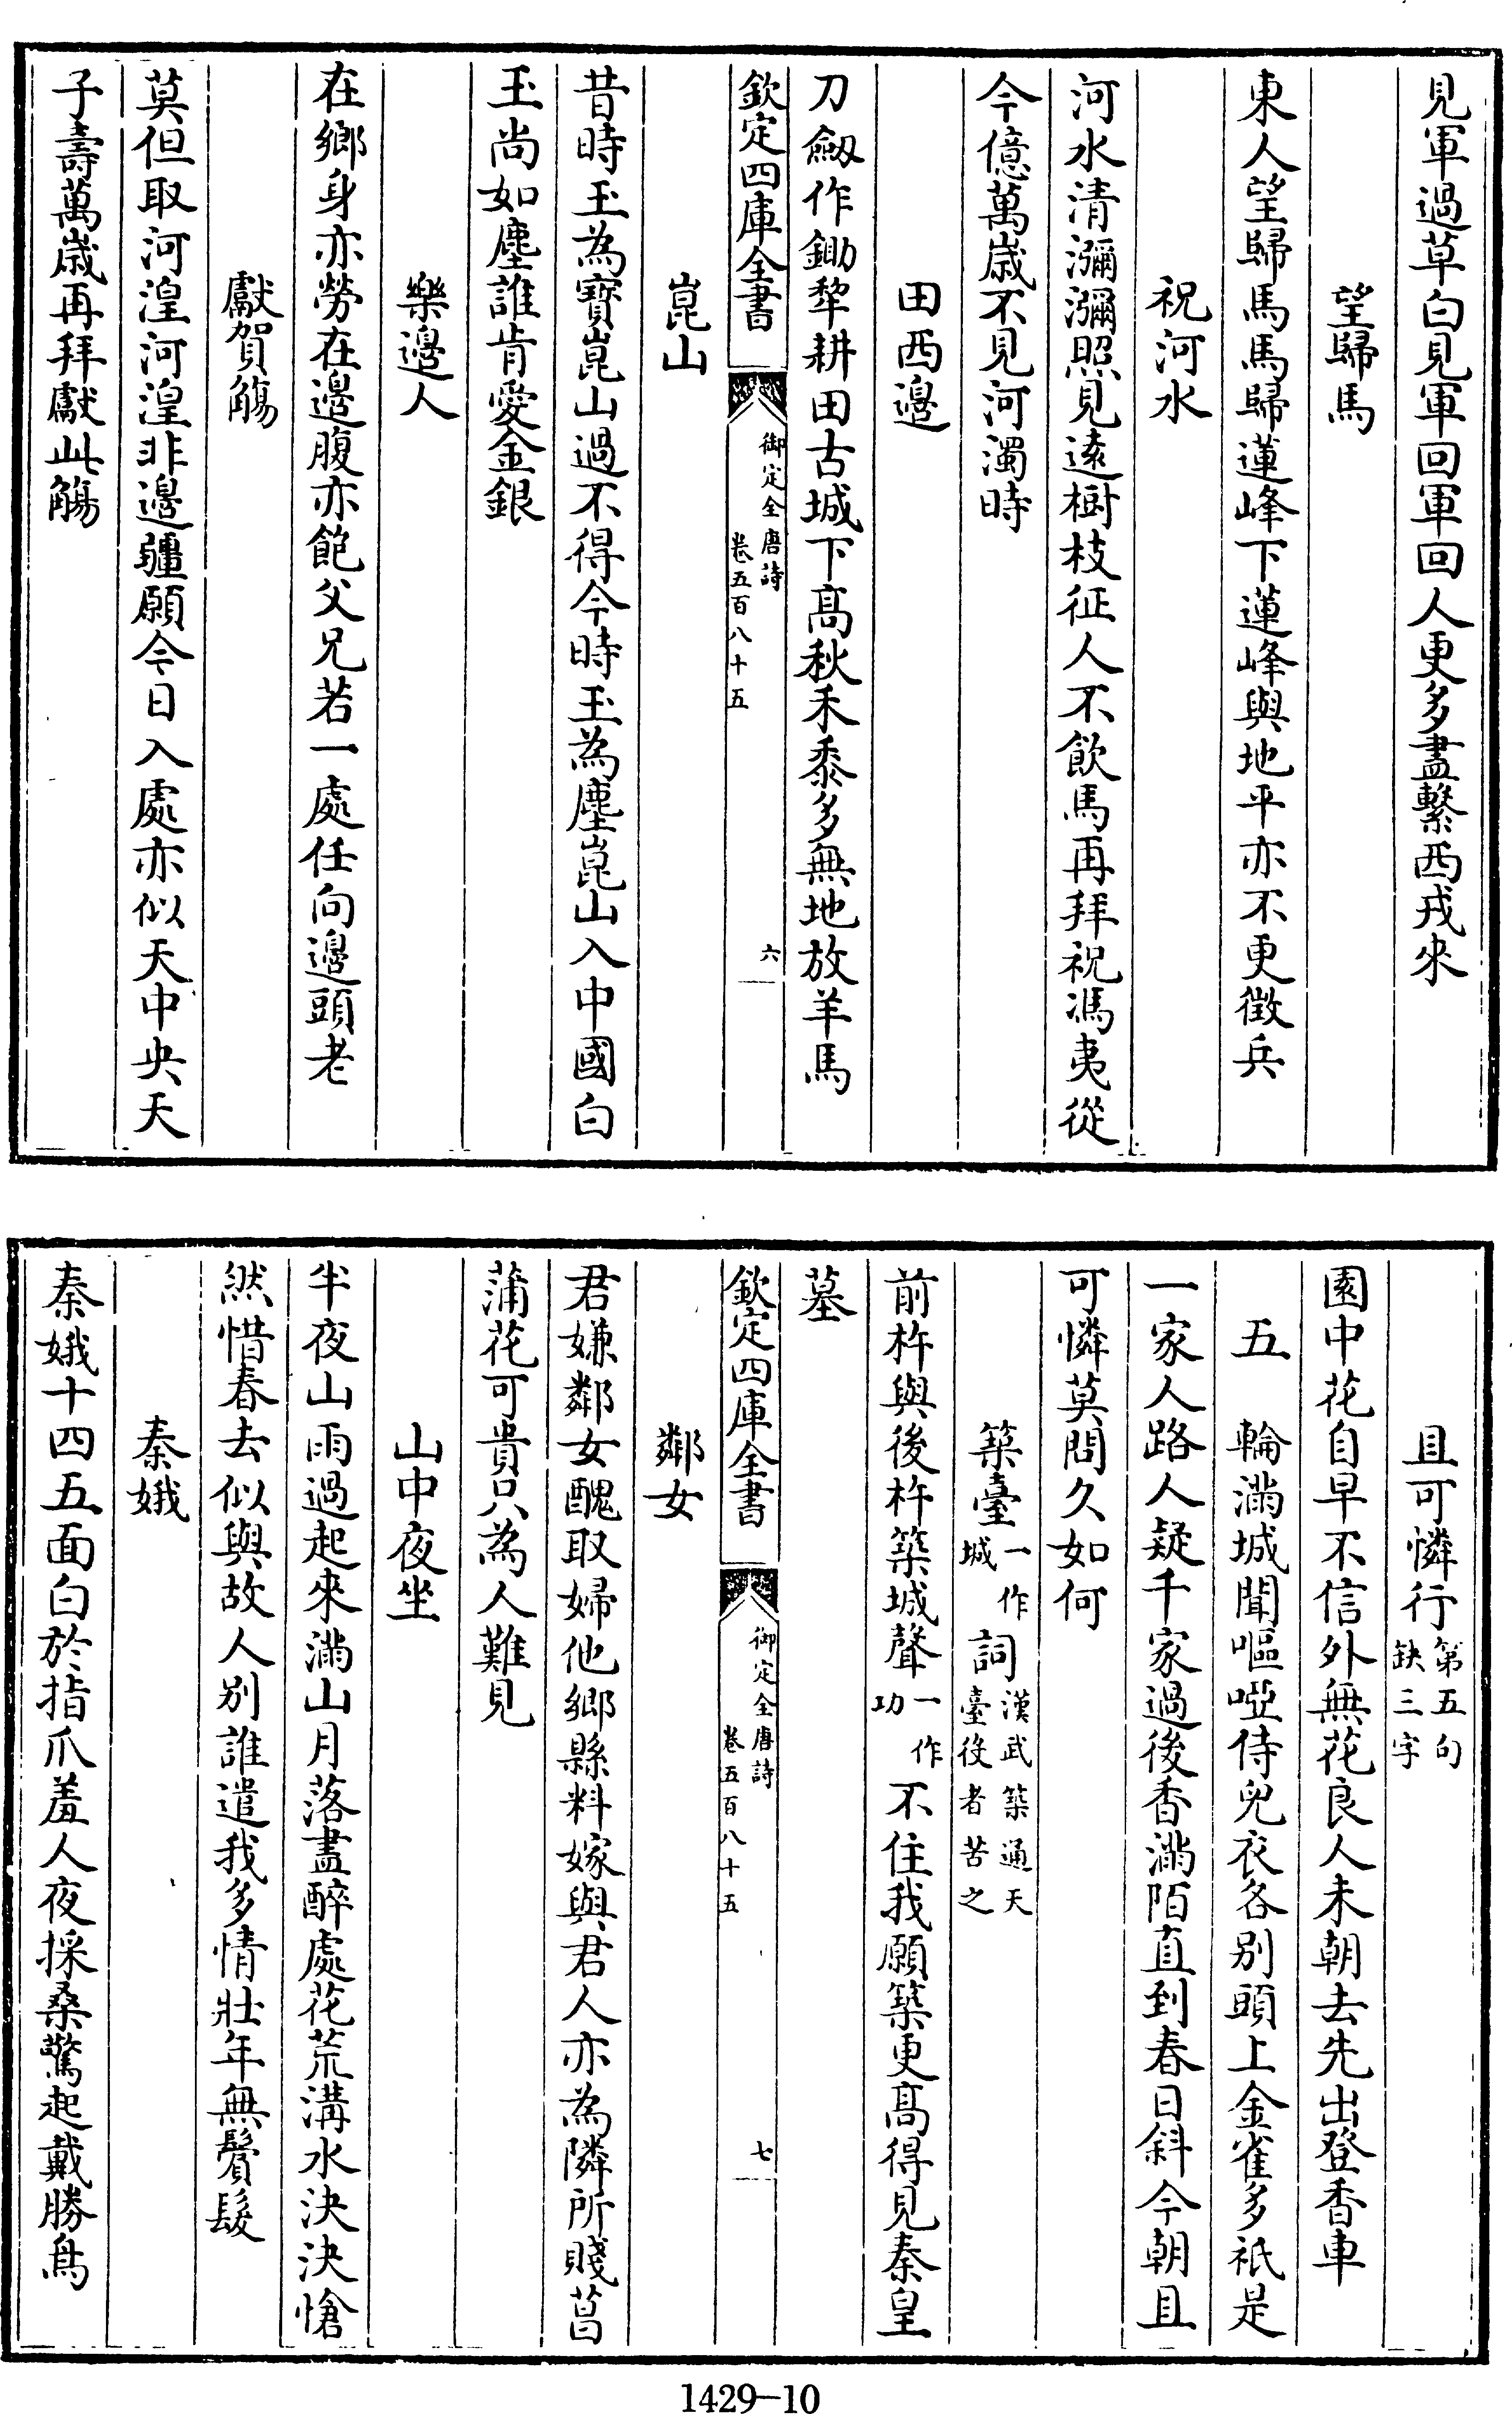 見軍過草白見軍回軍回人更多盡繫西戎來
望歸馬
東人望歸馬馬歸蓮峰下蓮峰與地平亦不更徵兵
祝河水
河水清瀰瀰照見遠樹枝征人不飲馬再拜祝馮夷從
今億萬歲不見河濁時
田西邊
刀劒作鋤犂耕田古城下高秋禾黍多無地放羊馬
欽定四庫全書
御定全唐詩
卷五百八十五
六
崑山
昔時玉為寶崑山過不得今時玉為塵崑山入中國白
玉尚如塵誰肯愛金銀
樂邊人
在鄉身亦勞在邊腹亦飽父兄若一處任向邊頭老
獻賀觴
莫但取河湟河湟非邊疆願今日入處亦似天中央天
子壽萬歲再拜獻此觴
且可憐行第五句
缺三字
園中花自早不信外無花良人未朝去先出登香車
五　輪滿城聞嘔啞侍兒衣各別頭上金雀多祇是
一家人路人疑千家過後香滿陌直到春日斜今朝且
可憐莫問久如何
築臺一作
城詞漢武築通天
臺役者苦之
前杵與後杵築城聲一作
功不住我願築更高得見秦皇
墓
欽定四庫全書
御定全唐詩
卷五百八十五
七
鄰女
君嫌鄰女醜取婦他鄉縣料嫁與君人亦為隣所賤菖
蒲花可貴只為人難見
山中夜坐
半夜山雨過起來滿山月落盡醉處花荒溝水決決愴
然惜春去似與故人別誰遣我多情壯年無鬢髮
秦娥
秦娥十四五面白於指爪羞人夜採桑驚起戴勝鳥
1429-10